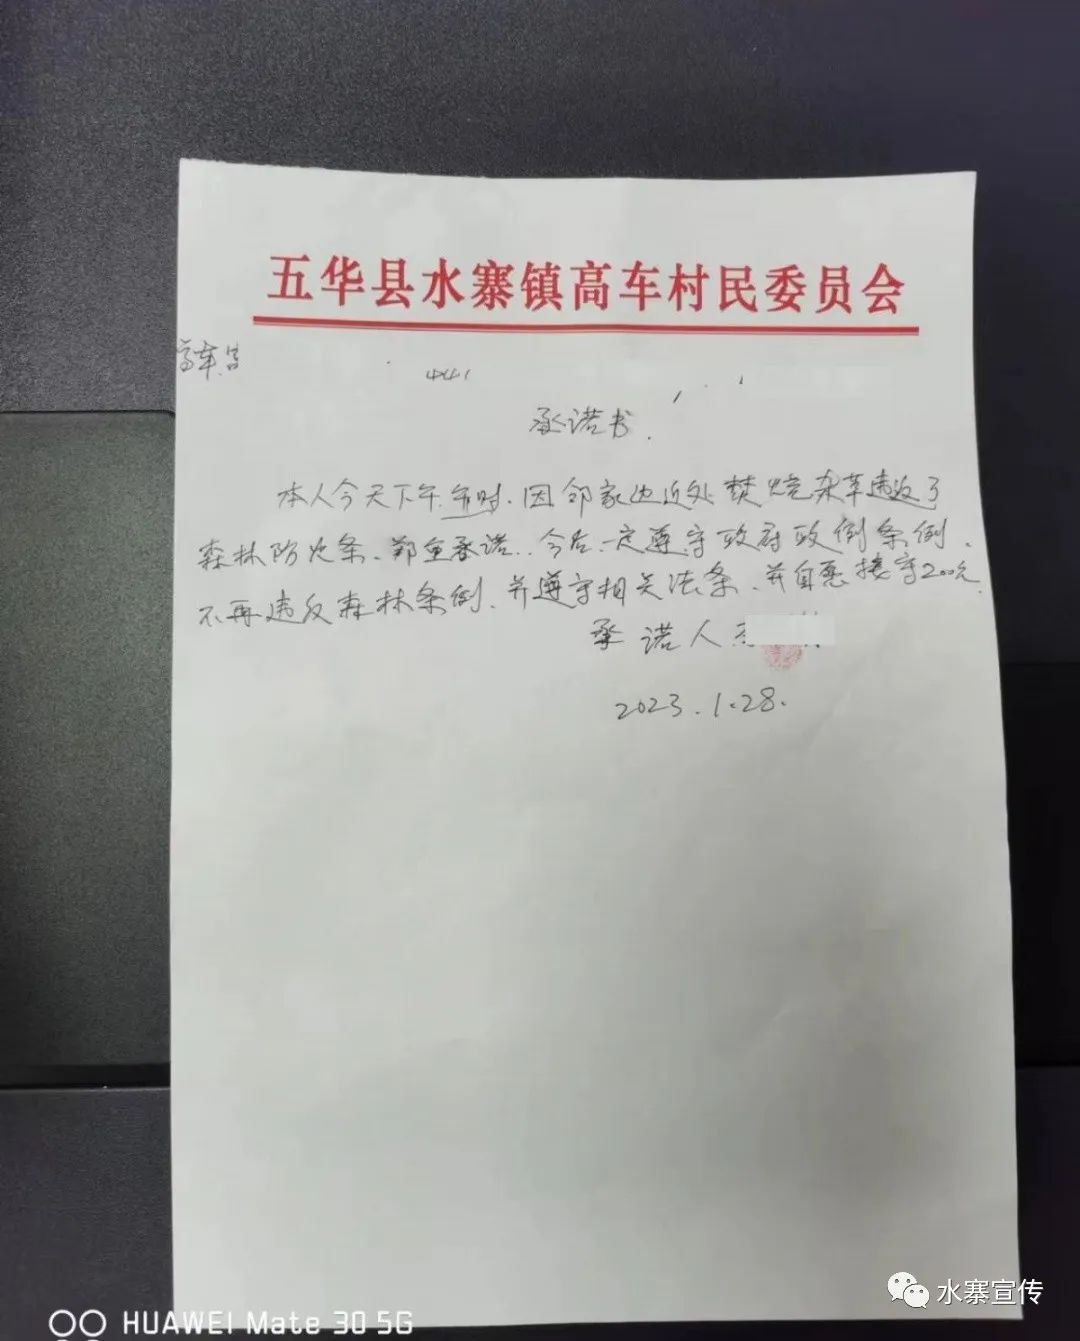 五华县水寨镇高车村民委员会
高车
441
承诺书.
本人今天下午午时.因邻家边近处焚烧杂草违返了
森林防火条、郑重承诺..今后一定遵守政府政例条例.
不再违反森林条例、并遵守相关法条、并自愿接守200元
承诺人
2023.1.28.
水寨宣传
HUAWEI Mate 30 5G